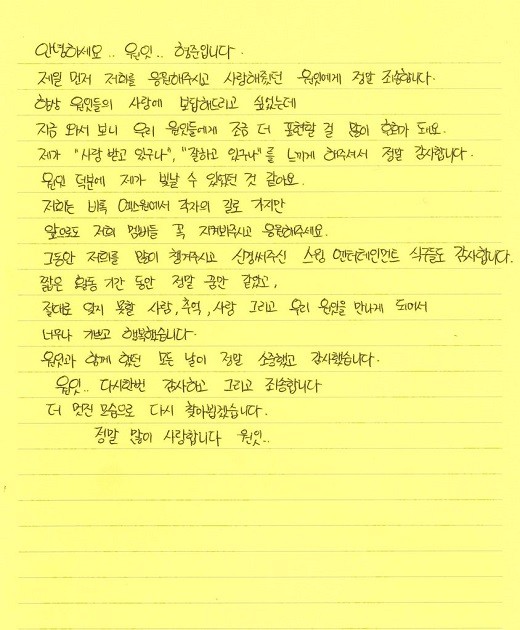 안녕하세요.. 원잇.. 형준입니다.
제일 먼저 저희를 응원해주시고 사랑해줬던 원잇에게 정말 죄송합니다.
항상 원잇들의 사랑에 보답해드리고 싶었는데
지금 와서 보니 우리 원잇들에게 조금 더 표현할 걸 많이 후회가 돼요.
제가 "사랑 받고 있구나", "잘하고 있구나"를 느끼게 해주셔서 정말 감사합니다.
원잇 덕분에 제가 빛날 수 있었던 것 같아요.
저희는 비록 예스원에서 각자의 길로 가지만
앞으로도 저희 멤버들 꼭 지켜봐주시고 응원해주세요.
그동안 저희를 많이 챙겨주시고 신경써주신 스윙 엔터테인먼트 식구들도 감사합니다.
짧은 활동 기간 동안 정말 꿈만 같았고,
절대로 잊지 못할 사람, 추억, 사랑 그리고 우리 원잇을 만나게 되어서
너무나 기쁘고 행복했습니다.
원잇과 함께 했던 모든 날이 정말 소중했고 감사했습니다.
원잇.. 다시한번 감사하고 그리고 죄송합니다
더 멋진 모습으로 다시 찾아뵙겠습니다.
정말 많이 사랑합니다 원잇..